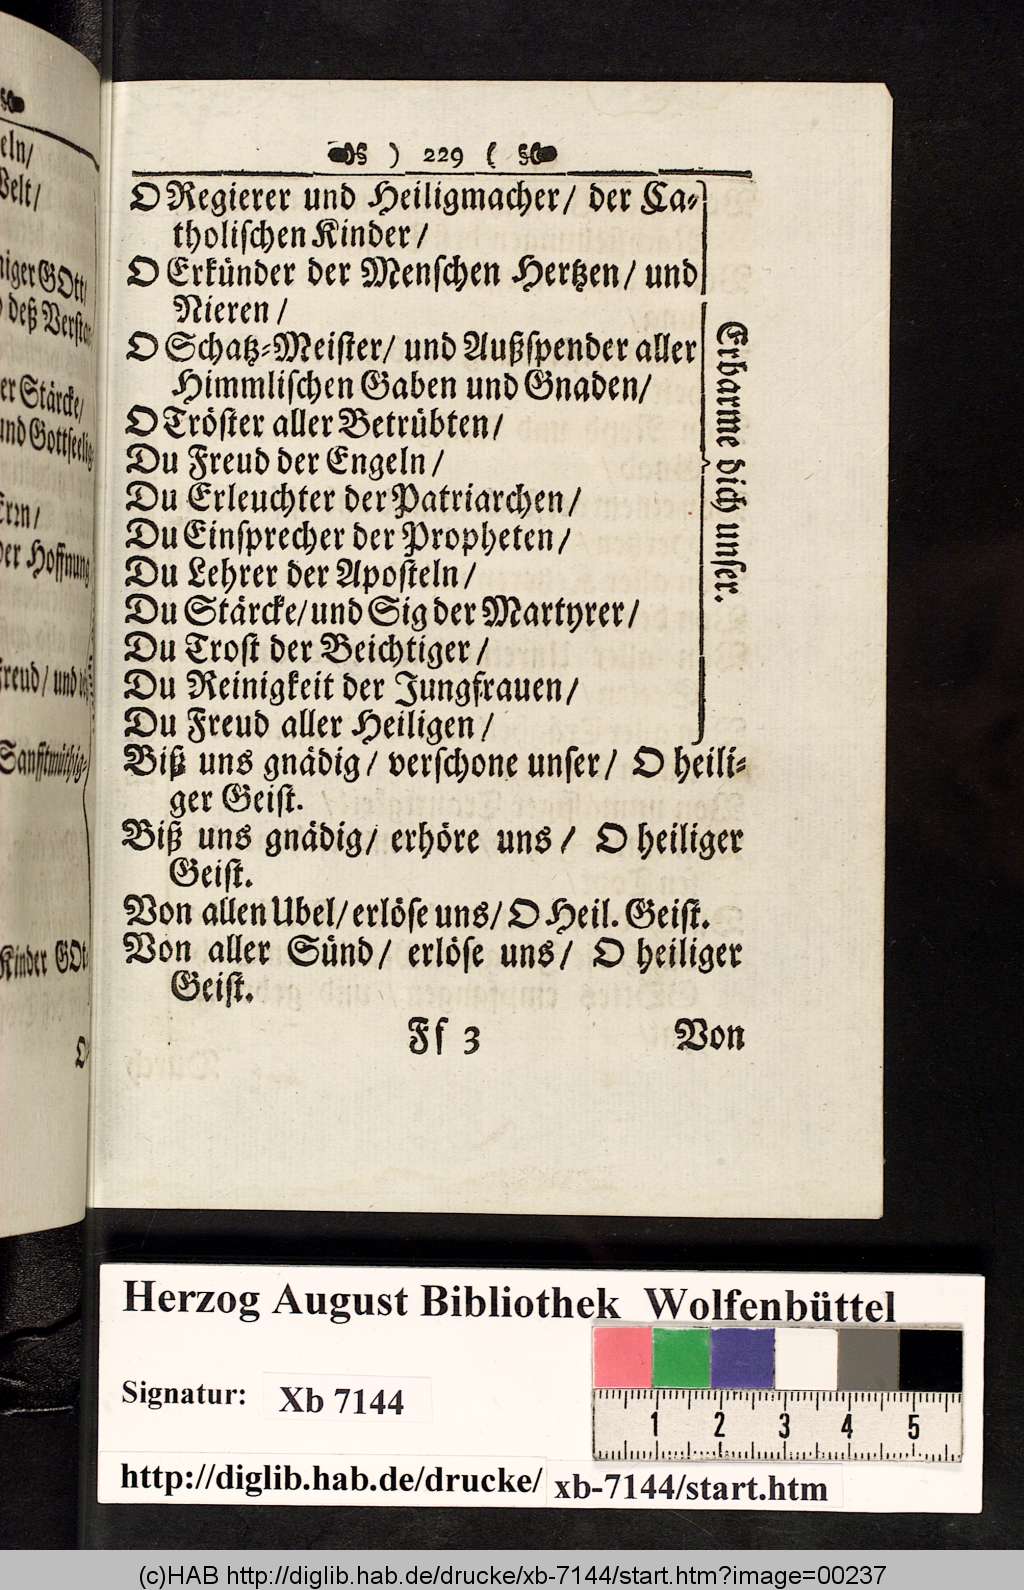 ) 229 (
O Regierer und Heiligmacher/ der Ca-
tholischen Kinder/
O Erkünder der Menschen Hertzen/ und
Nieren/
O Schatz-Meister/ und Außspender aller
Himmlischen Gaben und Gnaden/
O Tröster aller Betrübten/
Du Freud der Engeln/
Du Erleuchter der Patriarchen/
Du Einsprecher der Propheten/
Du Lehrer der Aposteln/
Du Stärcke/ und Sig der Martyrer/
Du Trost der Beichtiger/
Du Reinigkeit der Jungfrauen/
Du Freud aller Heiligen/
Erbarme dich unser.
Biß uns gnädig/ verschone unser/ O heili-
ger Geist.
Biß uns gnädig/ erhöre uns/ O heiliger
Geist.
Von allen Ubel/ erlöse uns/ O Heil. Geist.
Von aller Sünd/ erlöse uns/ O heiliger
Geist.
Ff 3 Von
eln/
Welt/
niger GOtt/
deß Versta
er Stärcke/
und Gottseelig
der Hoffnung
Freud/ und
Sanfftmüthig-
Kinder GOt
Herzog August Bibliothek Wolfenbüttel
Signatur: Xb 7144
1 2 3 4 5
http://diglib.hab.de/drucke/ xb-7144/start.htm
(c)HAB http://diglib.hab.de/drucke/xb-7144/start.htm?image=00237